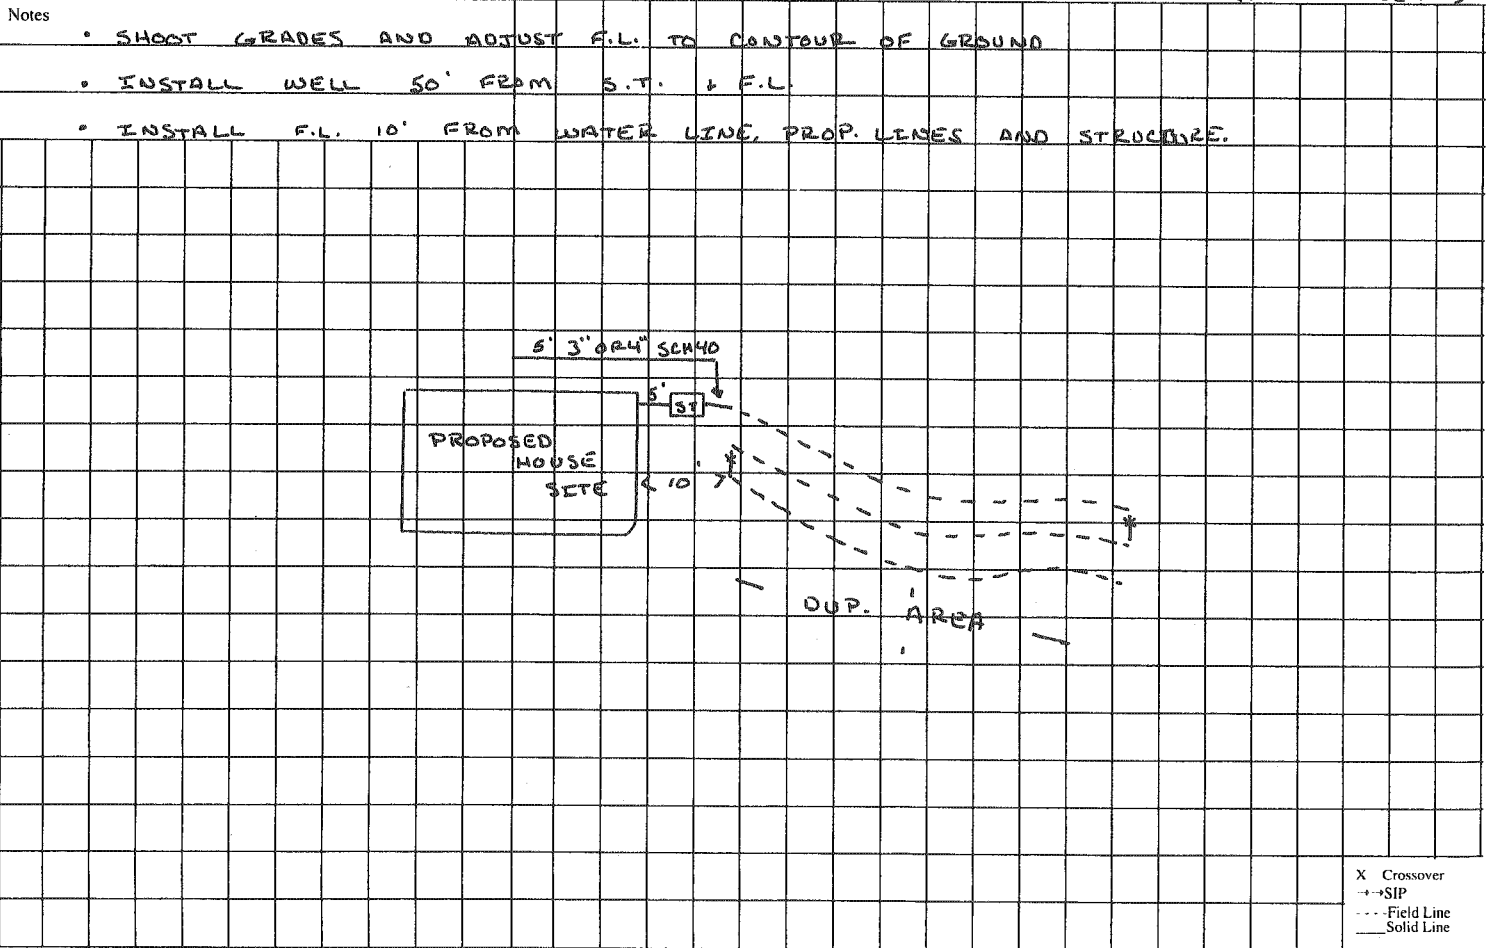 Notes
• SHOOT GRADES AND ADJUST F.L. TO CONTOUR OF GROUND
• INSTALL WELL 50' FROM S.T. & F.L.
• INSTALL F.L. 10' FROM WATER LINE, PROP. LINES AND STRUCTURE.
5' 3" OR 4" SCH40
5'
ST
PROPOSED
HOUSE
SITE
< 10' >
DUP. AREA
X Crossover
→→SIP
- - - -Field Line
____Solid Line